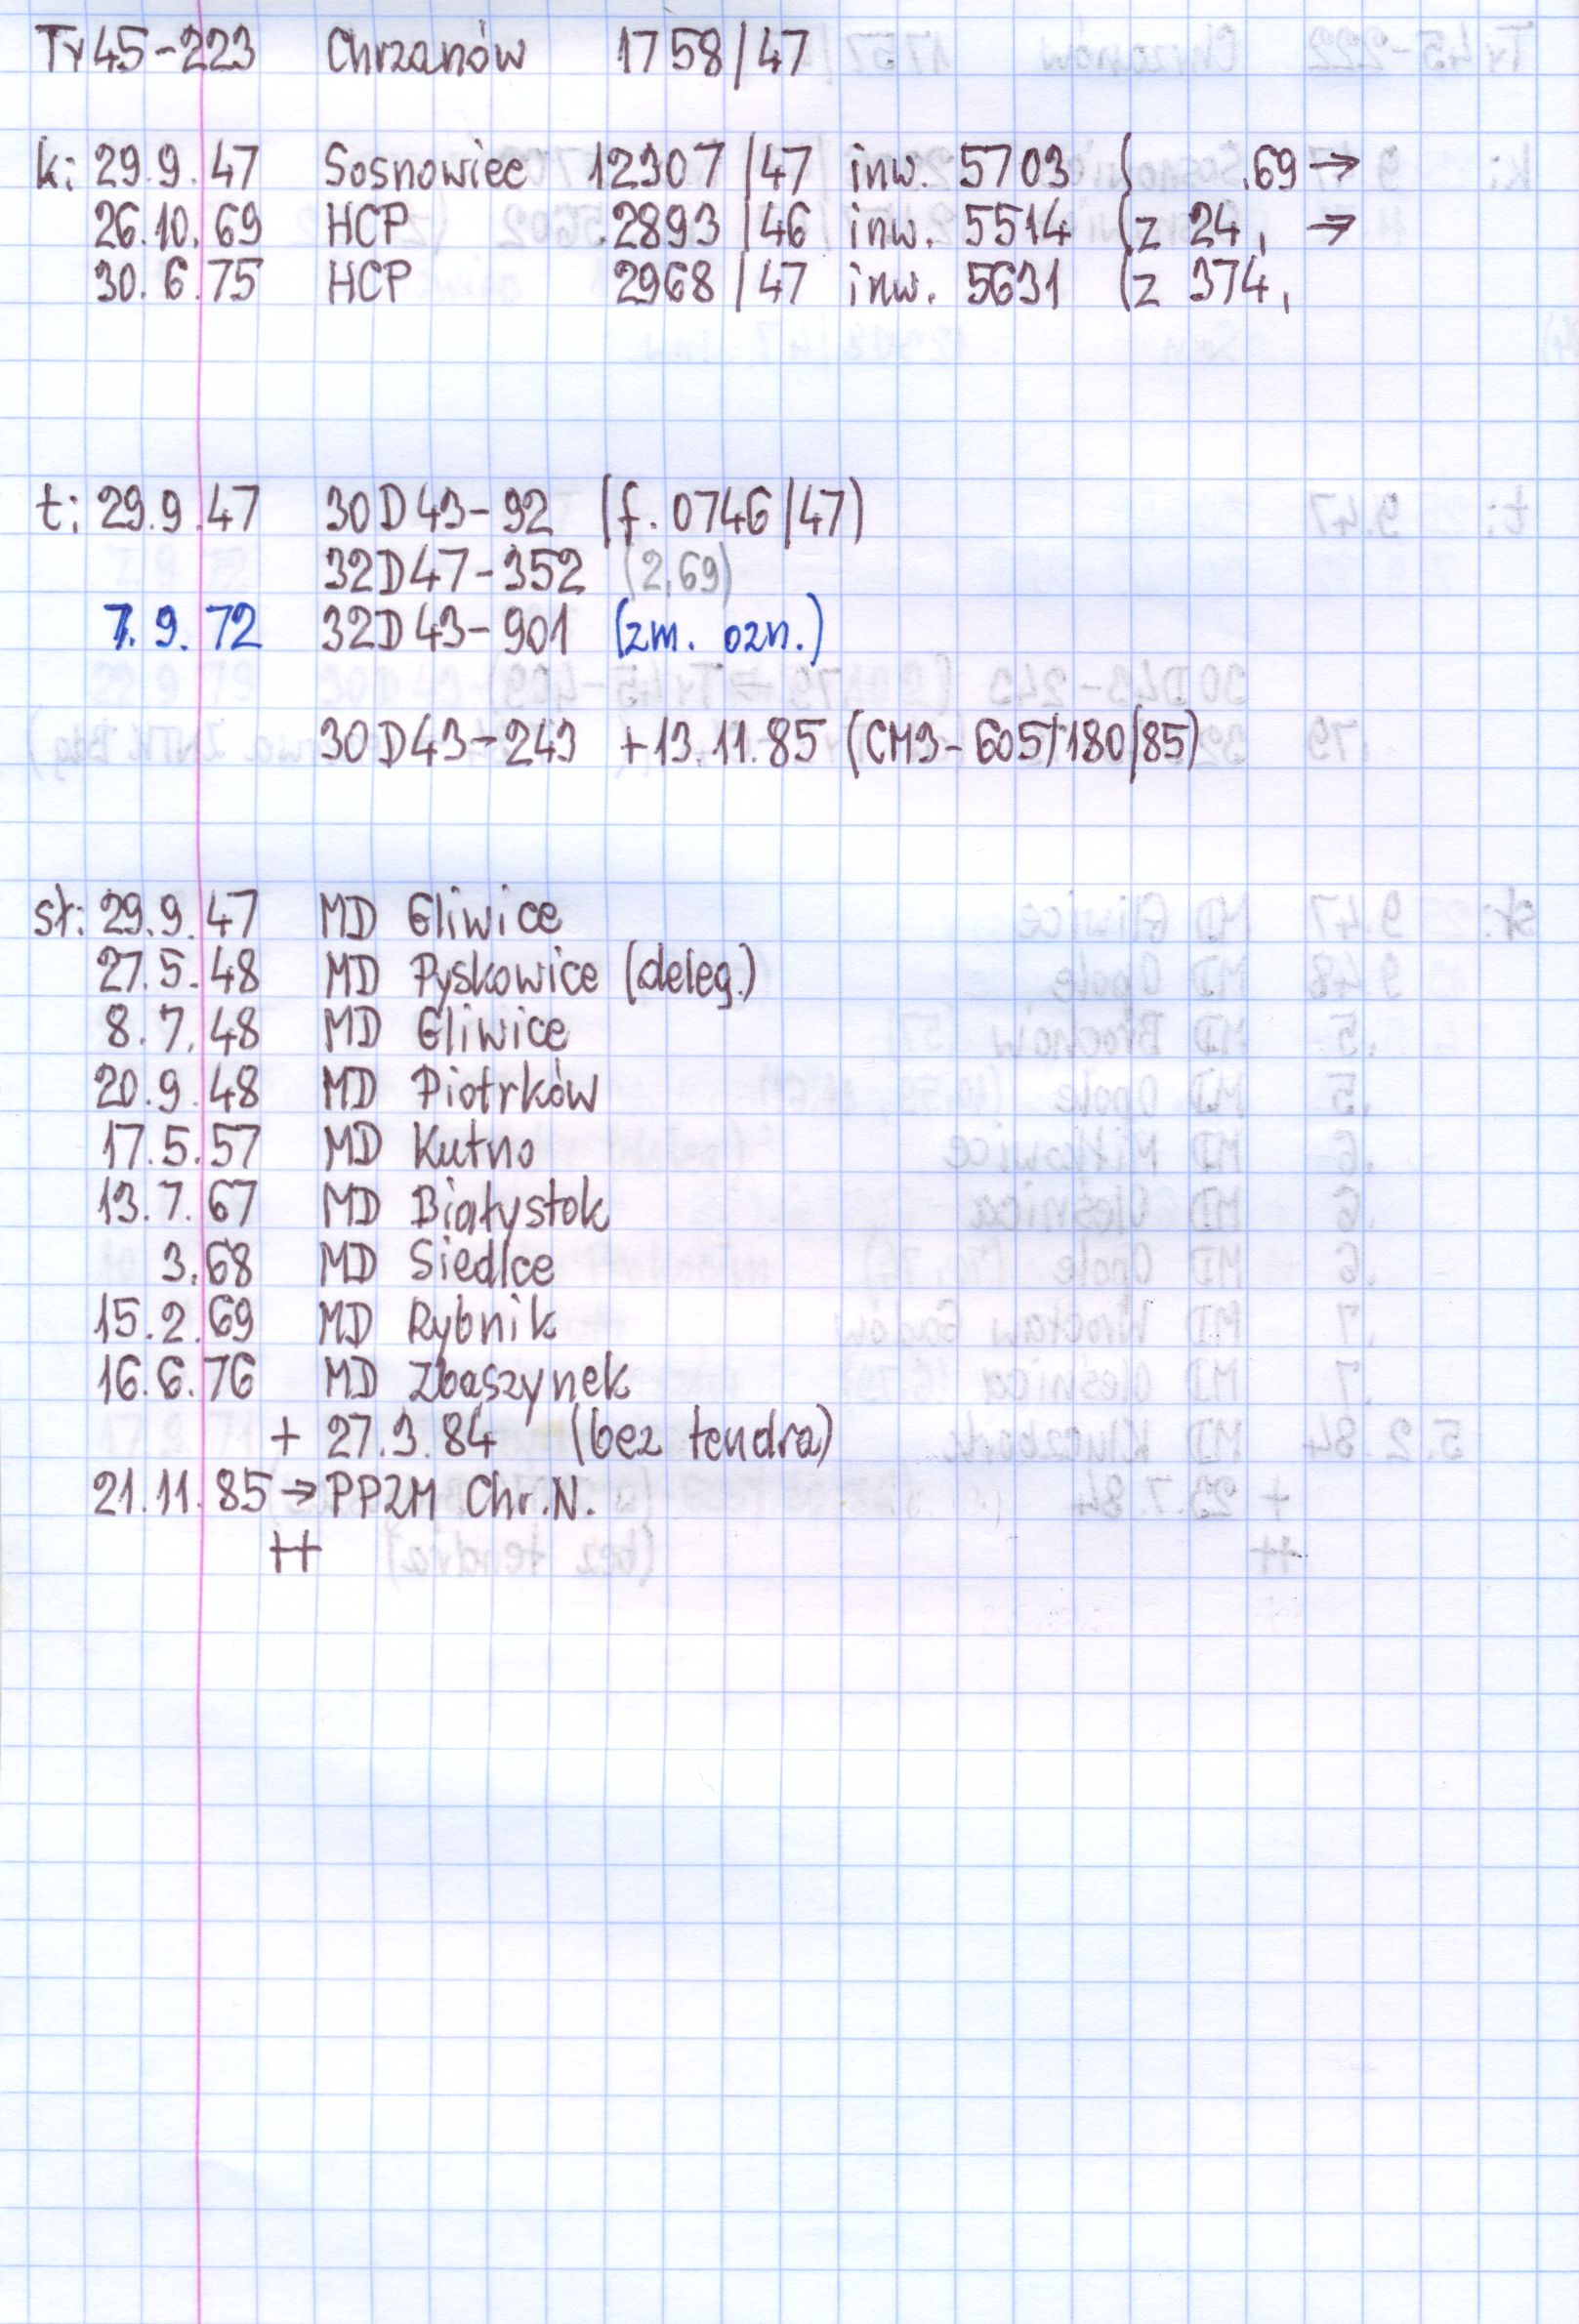 Ty45-223 Chrzanów 1758/47
k: 29.9.47 Sosnowiec 12307/47 inw. 5703 ( .69→
26.10.69 HCP 2893/46 inw. 5514 (z 24, →
30.6.75 HCP 2968/47 inw. 5631 (z 374,
t: 29.9.47 30D43-92 (f. 0746/47)
32D47-352 (2,69)
7.9.72 32D43-901 (zm. ozn.)
30D43-243 +13.11.85 (CM3-605/180/85)
st: 29.9.47 MD Gliwice
27.5.48 MD Pyskowice (deleg.)
8.7.48 MD Gliwice
20.9.48 MD Piotrków
17.5.57 MD Kutno
13.7.67 MD Białystok
3.68 MD Siedlce
15.2.69 MD Rybnik
16.6.76 MD Zbąszynek
+ 27.3.84 (bez tendra)
21.11.85→PPZM Chr.N.
++